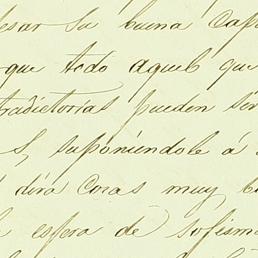 esar su buena Cap
que todo aquel que
tradictorias pueden ser
s, suponiéndole á
dirá cosas muy b
esfera de sofism